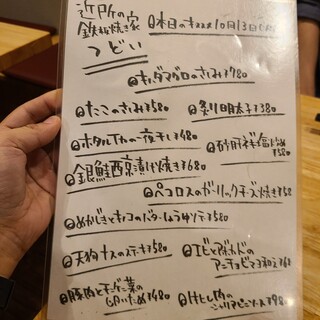 近所の
鉄板焼き家
つどい
本日のオススメ10月13日
キハダマグロのさしみ¥780
たこのさしみ¥580
炙り明太子¥380
ホタルイカの一夜干し¥480
砂肝ネギ塩
銀鮭西京漬け焼き¥680
ペコロスのガーリックチーズ焼き¥58
めかじきとキノコのバターしょうゆソテ¥580
天狗ナスのステーキ¥580
エビとアボカドの
アンチョビマヨ和え
豚肉と
いため¥680
ヒレ肉の
シャリアピンソース